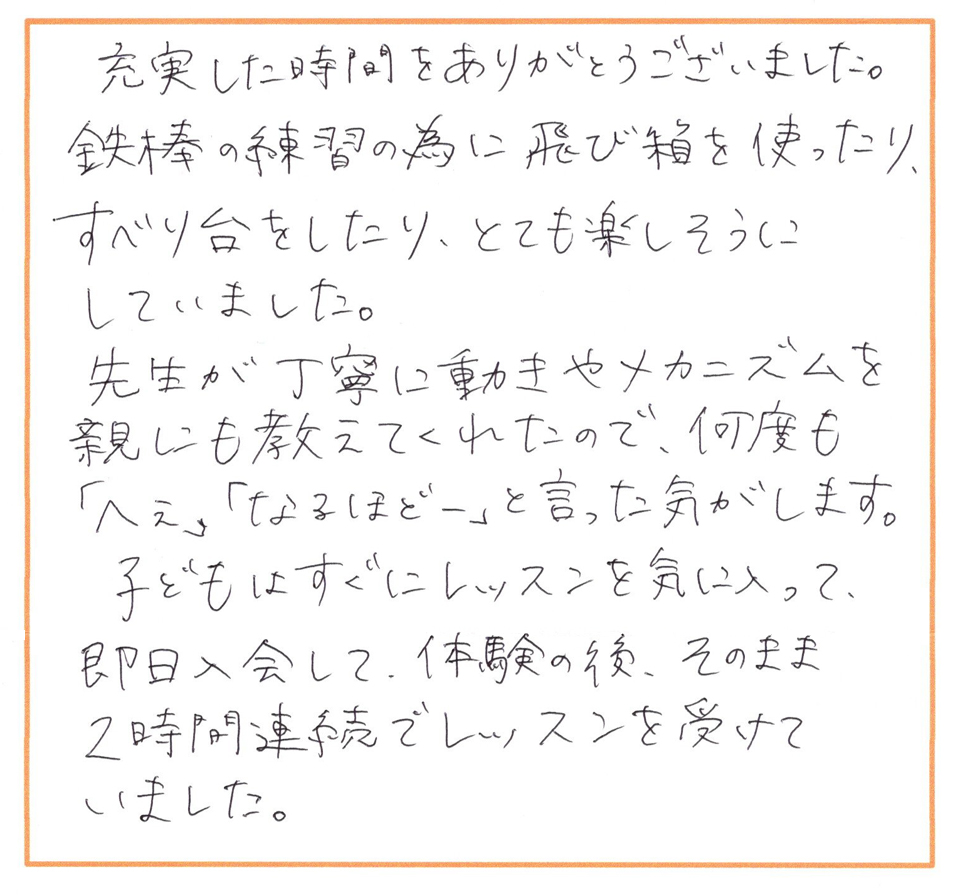 充実した時間をありがとうございました。
鉄棒の練習の為に飛び箱を使ったり、
すべり台をしたり、とても楽しそうに
していました。
先生が丁寧に動きやメカニズムを
親にも教えてくれたので、何度も
「へぇ」「なるほどー」と言った気がします。
子どもはすぐにレッスンを気に入って、
即日入会して、体験の後、そのまま
2時間連続でレッスンを受けて
いました。